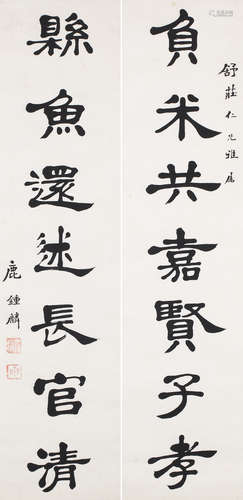 舒莊仁兄雅屬
負米共嘉賢子孝
縣魚還述長官清
鹿鍾麟